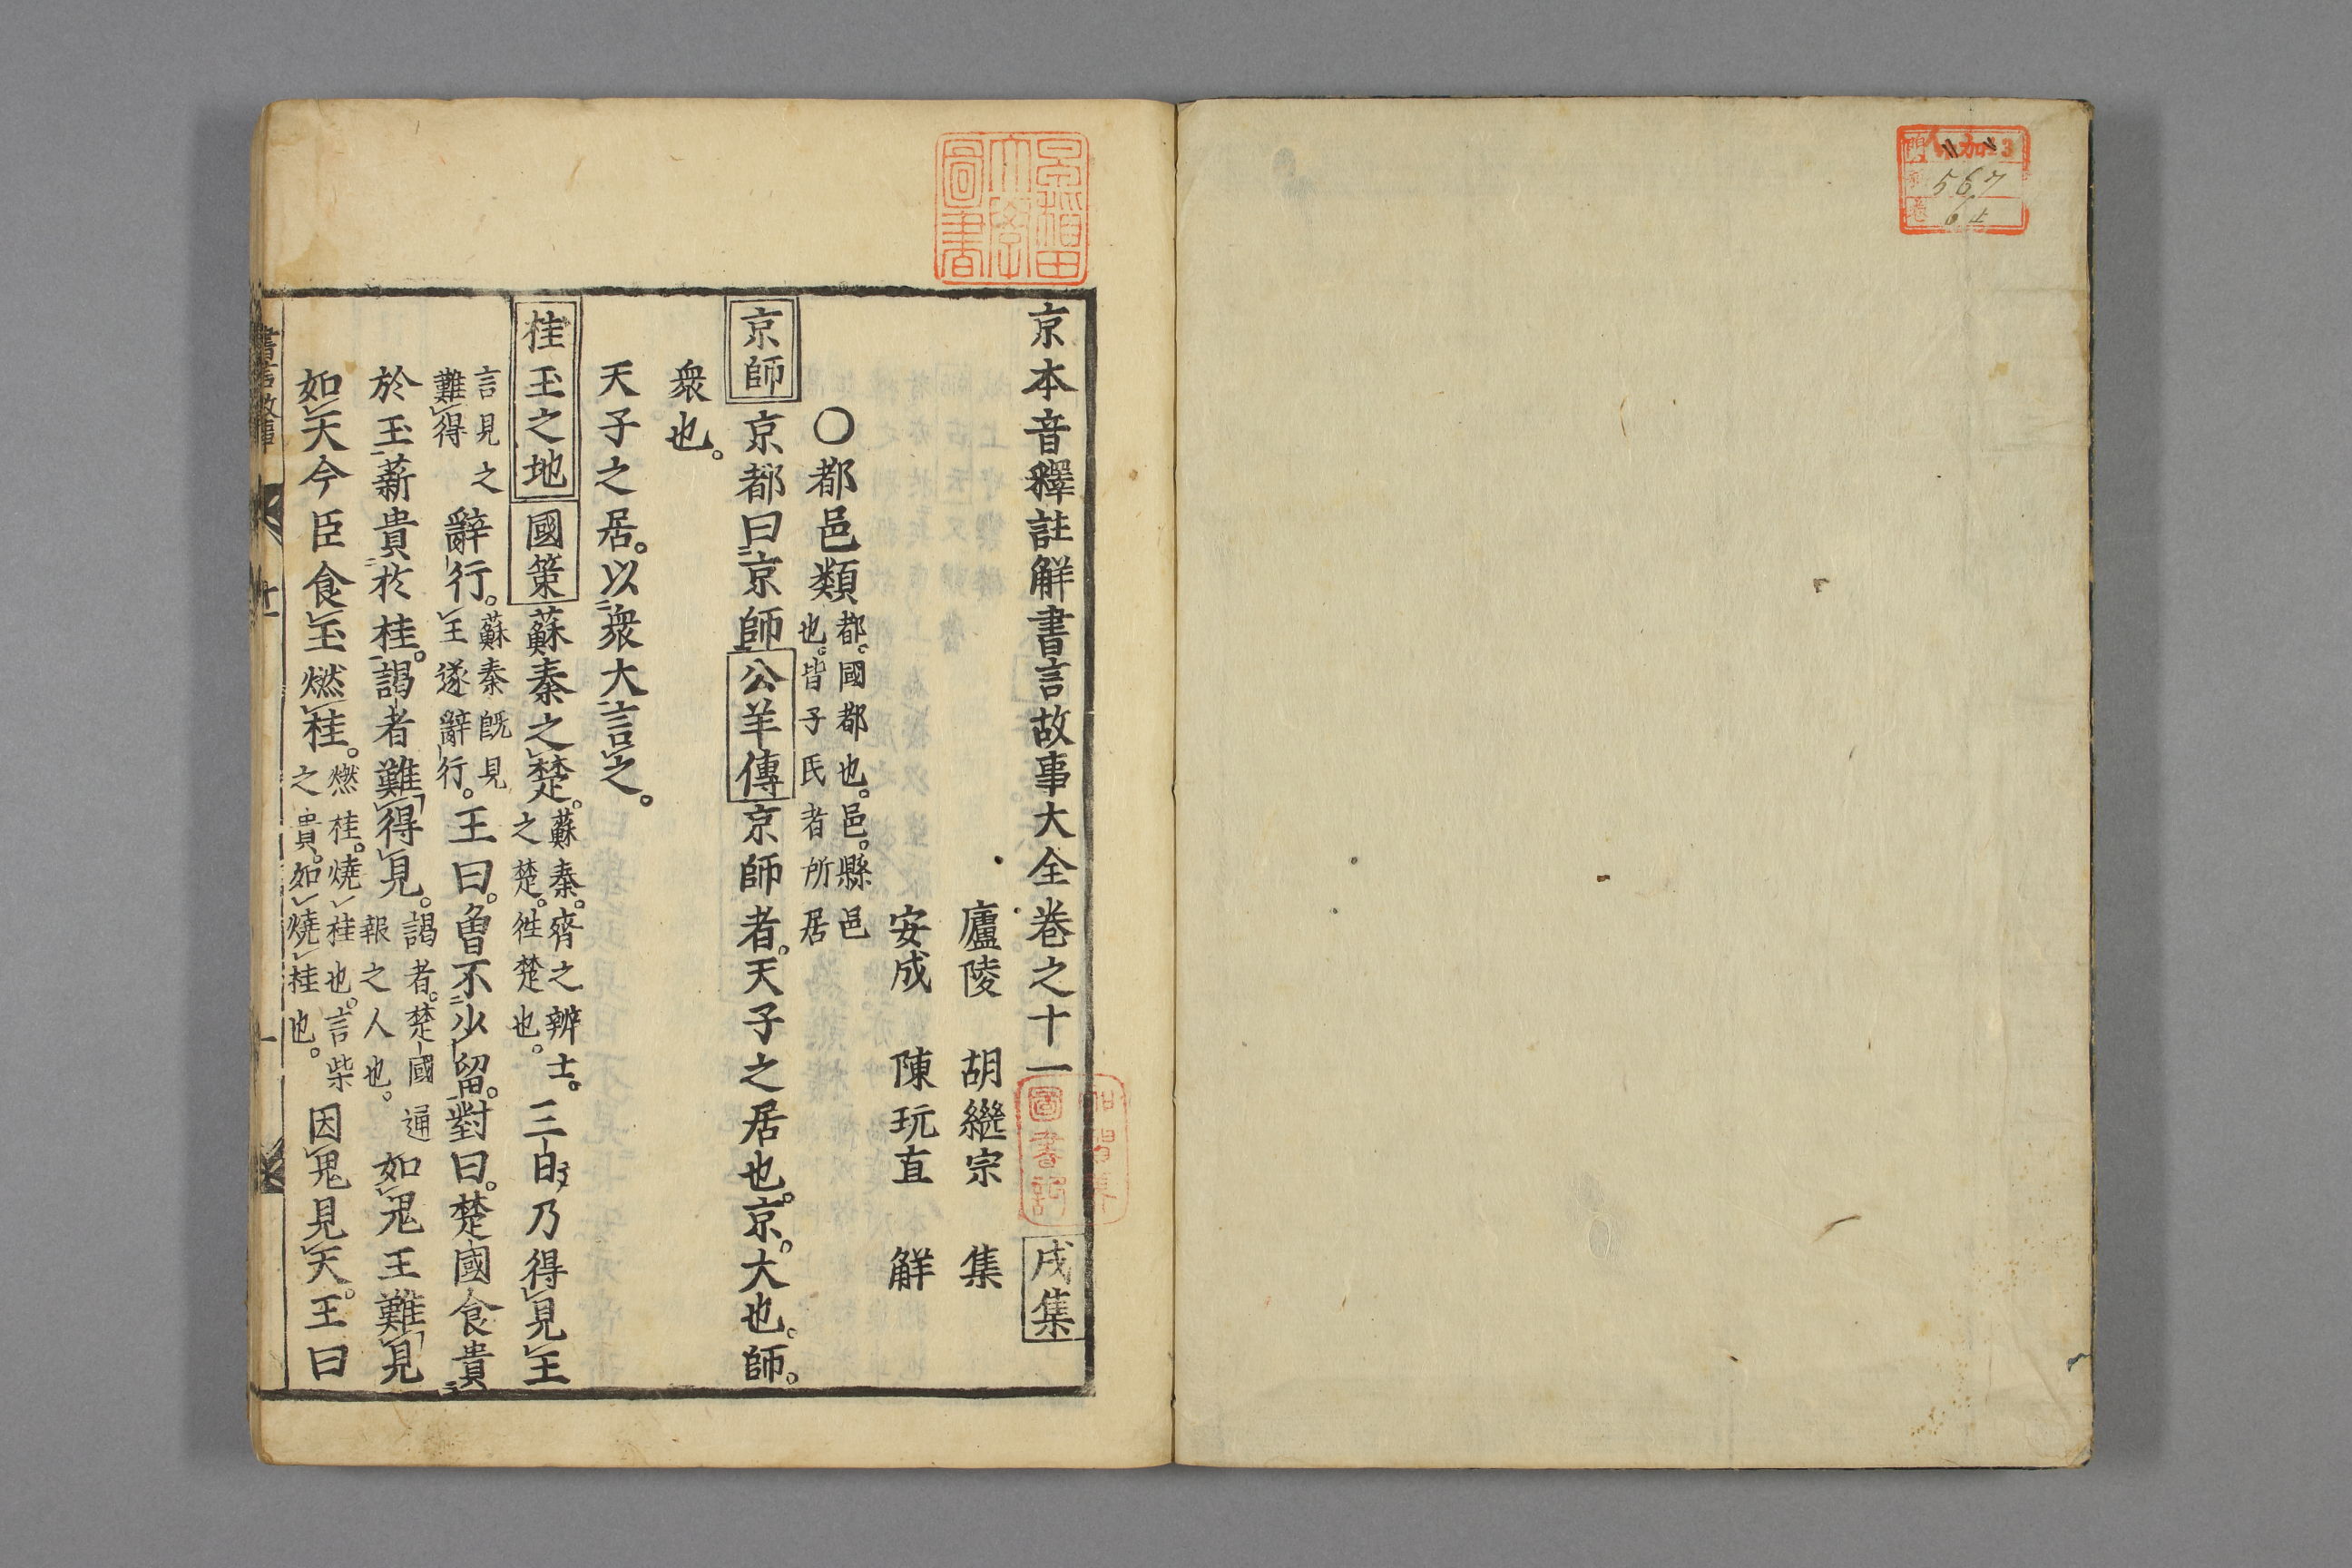 京本音釋註解書言故事大全卷之十一 戌集
廬陵 胡繼宗 集
安成 陳玩直 解
〇都邑類 都。國都也。邑。縣邑
也。皆子氏者所居
京師 京都曰京師 公羊傳 京師者。天子之居也。京。大也。師。
衆也。
天子之居。以衆大言之。
桂玉之地 國策 蘇秦之楚。 蘇秦。齊之辨士。
之楚。徃楚也。
三日乃得見王
言見之
難得
辭行。
蘇秦既見
王遂辭行。
王曰。曾不少留。對曰。楚國食貴
於玉薪貴於桂。謁者難得見。
謁者。楚國通
報之人也。
如鬼王難見
如天今臣食玉燃桂。
燃桂。燒桂也。言柴
之貴。如燒桂也。
因鬼見天。王曰
書言故事
十一
一
門 加 3
567
卷 61
圖書